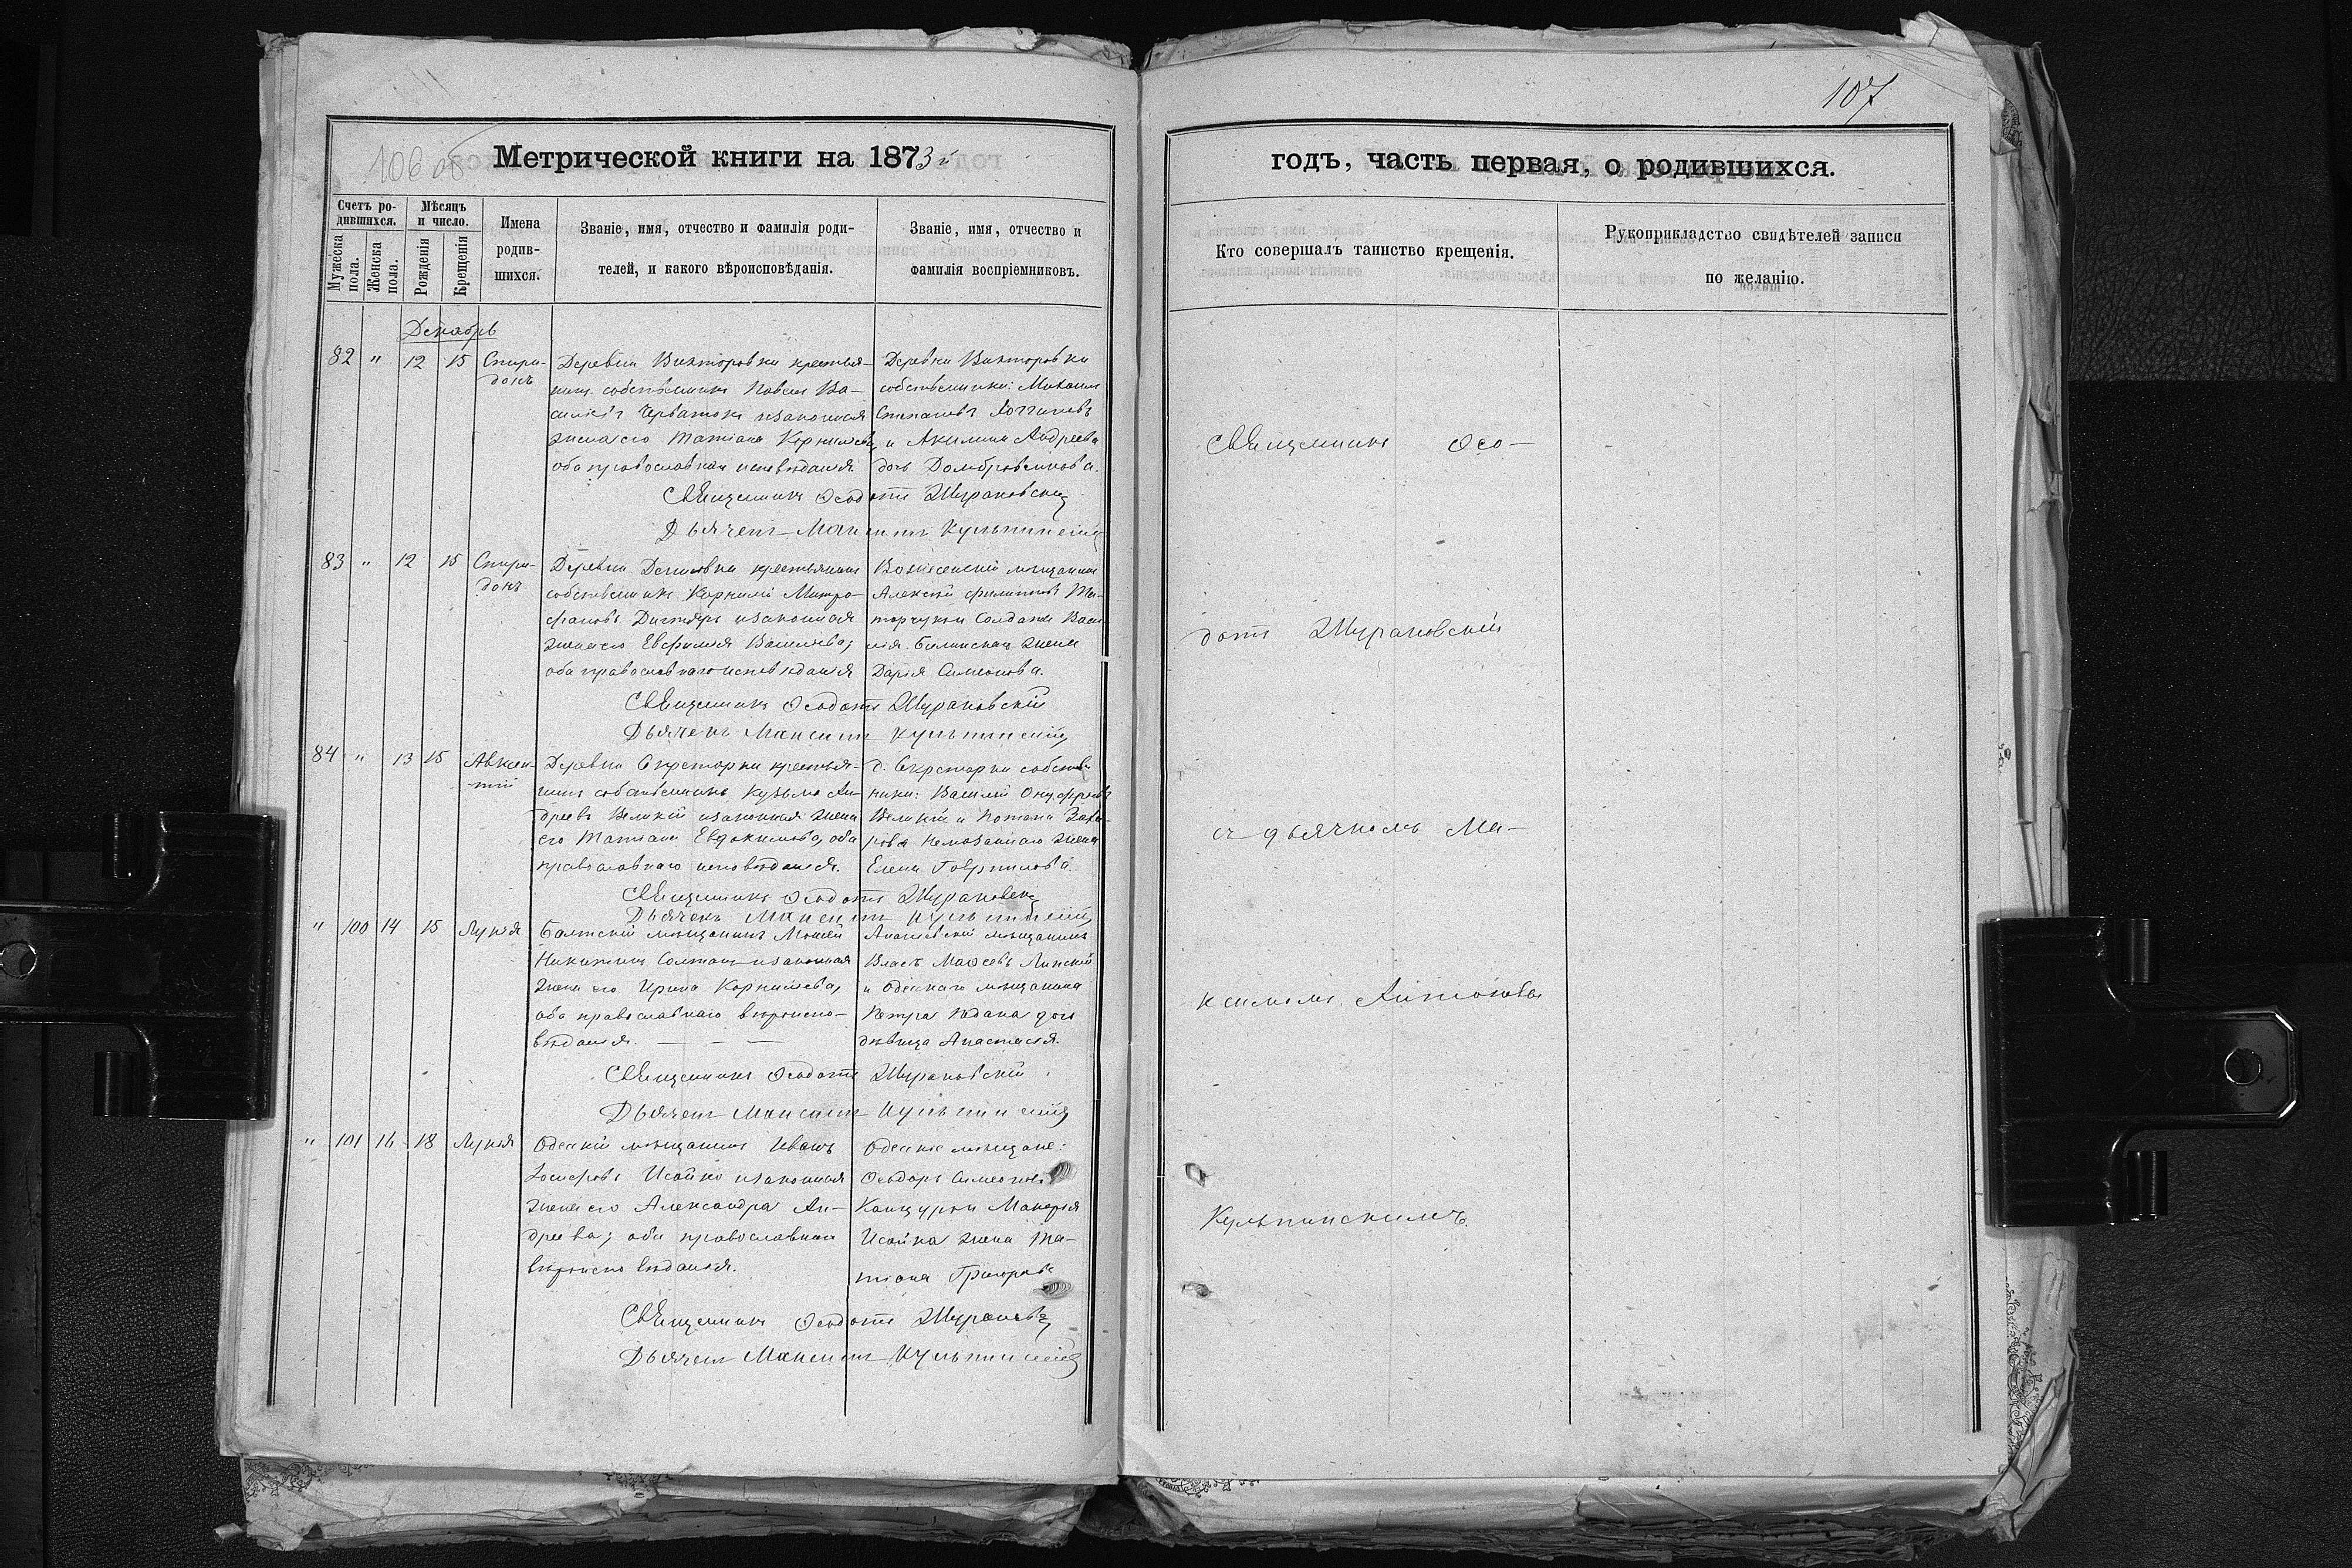 106 об
Метрической книги на 1873 й
Счетъ ро-
дившихся.
Мѣсяцъ
и число.
Мужеска
пола.
Женска
пола.
Рожденія
Крещенія
Имена
родив-
шихся.
Званіе, имя, отчество и фамилія роди-
телей, и какого вѣроисповѣданія.
Званіе, имя, отчество и
фамилія воспріемниковъ.
Декабрь
82 " 12 15 Спири-
донъ
Деревни Викторовки крестья-
нинъ собственникъ Павелъ Ва-
изаконная
жена его Татіана Корнилова,
оба православнаго исповѣданія
Деревни Викторовки
собственники: Михаилъ
Степановъ
и Акилина Андреева
дочь Домбровскова.
Священникъ Ѳеодотъ Шурановскій
Дьячекъ Максимъ Кульпинскій
83 " 12 15 Спири-
донъ
Деревни крестьянинъ
собственникъ Корнилій Митро-
фановъ изаконная
жена его Евфимія Васильева,
оба православнаго исповѣданія
Вознесенскій мѣщанинъ
Алексѣй Филиповъ
Солдата Васи-
лія жена
Дарія Симеонова.
Священникъ Ѳеодотъ Шурановскій
Дьячекъ Максимъ Кульпинскій
84 " 13 15 Авксен-
тій
Деревни Секретарки крестья-
нинъ собственникъ Кузьма Ан-
дреевъ Великій изаконная жена
его Татіана Евдокимова, оба
православнаго исповѣданія.
д. Секретарки собствен-
ники: Василій Онуфріевъ
Великій и Потапа Заха-
рова жена
Елена Гавриилова.
Священникъ Ѳеодотъ Шурановскій
Дьячекъ Максимъ Кульпинскій
" 100 14 15 Лукія
Балтскій мѣщанинъ Моисей
Никитинъ изаконная
жена его Ирина Корнилова,
оба православнаго вѣроиспо-
вѣданія. — — —
Ананіевскій мѣщанинъ
Власъ Моѵсеевъ Липскій
и Одесскаго мѣщанина
Петра дочь
дѣвица Анастасія.
Священникъ Ѳеодотъ Шурановскій
Дьячекъ Максимъ Кульпинскій
" 101 16 18 Лукія
Одесскій мѣщанинъ Иванъ
Іосифовъ Исайко изаконная
жена его Александра Ан-
дреева; оба православнаго
вѣроисповѣданія.
Одесскіе мѣщане:
Ѳеодоръ Симеоновъ
Макарія
Исайка жена Та-
тіана Григорьева
Священникъ Ѳеодотъ Шурановскій
Дьячекъ Максимъ Кульпинскій
107
годъ, часть первая, о родившихся.
Кто совершалъ таинство крещенія.
Рукоприкладство свидѣтелей записи
по желанію.
Священникъ Ѳео-
дотъ Шурановскій
съ дьячкомъ Ма-
ксимомъ
Кульпинскимъ.